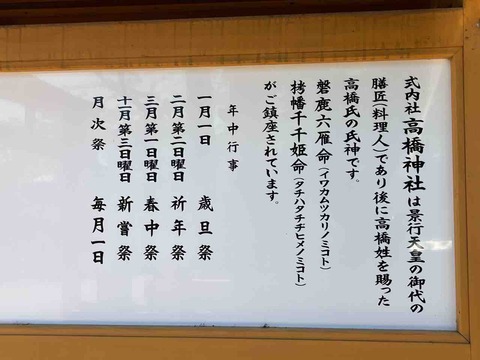 式内社 高橋神社は景行天皇の御代の
膳匠(料理人)であり後に高橋姓を賜った
高橋氏の氏神です。
磐鹿六雁命(イワカムツカリノミコト)
栲幡千千姫命(タチハタチヂヒメノミコト)
がご鎮座されています。
年中行事
一月一日 歳旦祭
二月第二日曜日 祈年祭
三月第一日曜日 春中祭
十一月第三日曜日 新嘗祭
月次祭 毎月一日